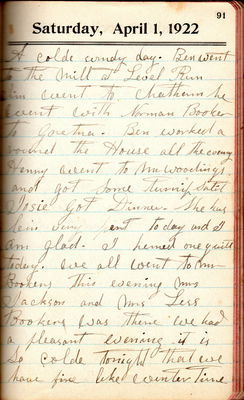 91
Saturday, April 1, 1922
A colde windy day. Ben went
to the Mill at Level Run
Jim went to Chatham he
went with Norman Booker
to Gretna. Ben worked a
round the House all the evening
Henny went to Mr Woodings
and got some turnip Salet
Josie Got Dinner. She has
bein very pert to day and I
am glad. I hemed one quilt
today. we all went to Mr
Bookers this evening Mrs
Jackson and Mrs Less
Bookers was there we had
a pleasant evening it is
So colde tonight that we
have fire like winter time